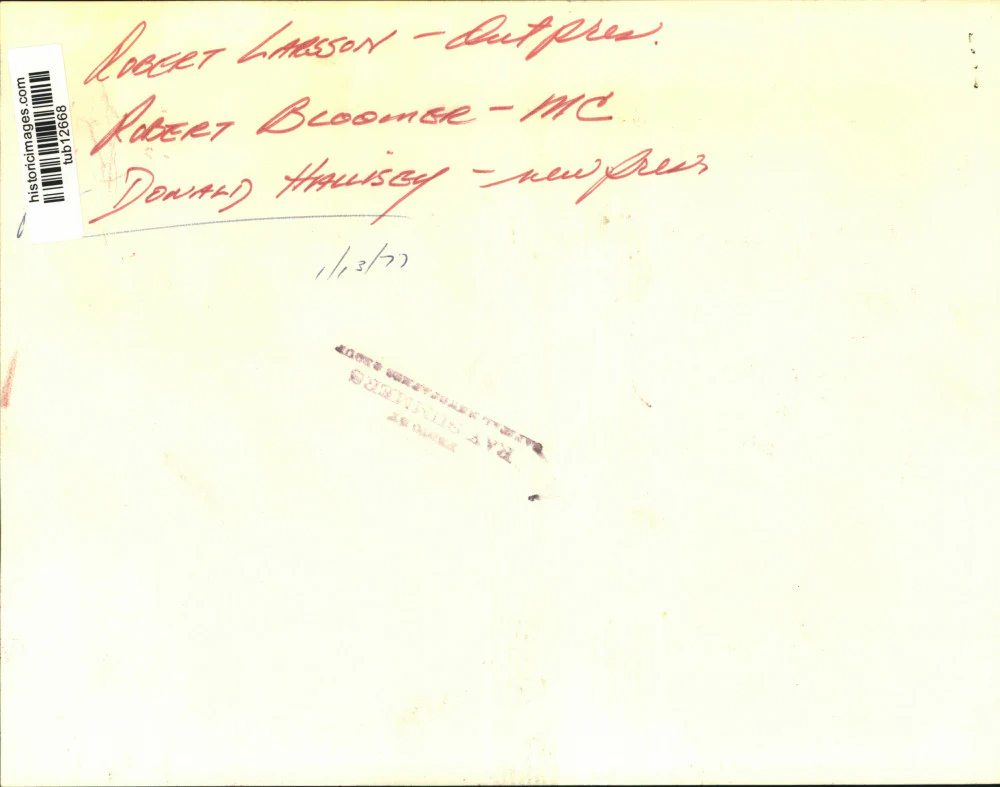 Robert Larsson - Out pres.
Robert Bloomer - MC
Donald Hallisey - new pres
1/13/77
historicimages.com
tub12668
PHOTO BY
RAY SUMMERS